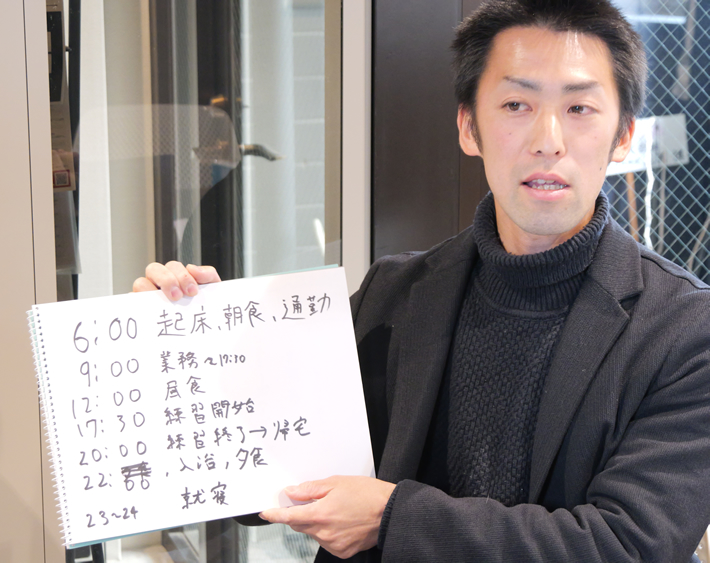 6:00 起床、朝食、通勤
9:00 業務~17:10
12:00 昼食
17:30 練習開始
20:00 練習終了→帰宅
22:00 、入浴、夕食
23~24 就寝